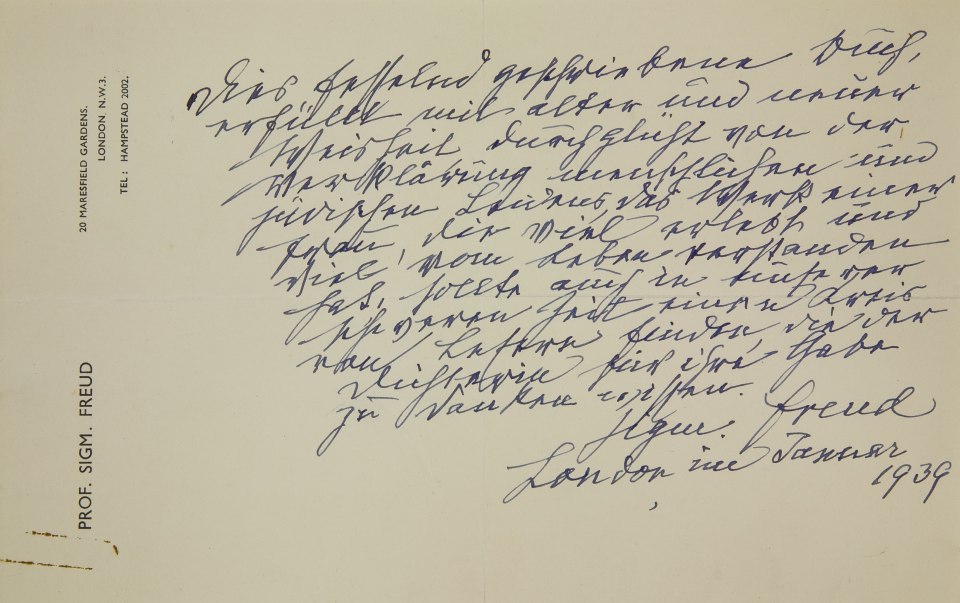 PROF. SIGM. FREUD
20 MARESFIELD GARDENS.
LONDON. N.W.3.
TEL: HAMPSTEAD 2002.
Dies fesselnd geschriebene Buch,
erfüllt mit alter und neuer
Weisheit durchglüht von der
Verklärung menschlichen und
jüdischen Leidens das Werk einer
Frau, die viel erlebt und
viel vom Leben verstanden
hat, sollte auch in unserer
schweren Zeit einen Kreis
von Lesern finden die der
Dichterin für ihre Gabe
zu danken wissen.
Sigm. Freud
London im Januar
1939